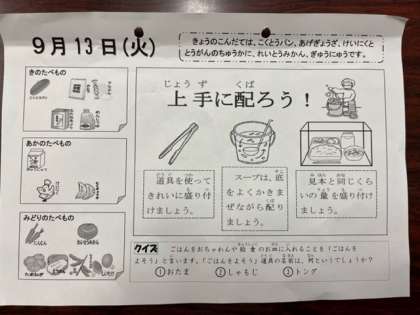 9月13日(火)
きょうのこんだては、こくとうパン、あげぎょうざ、けいにくと
とうがんのちゅうかに、れいとうみかん、ぎゅうにゅうです。
きのたべもの
あかのたべもの
みどりのたべもの
にんじん
じょうず くば
上手に配ろう！
道具を使って
きれいに盛り付
けましょう。
スープは、底
をよくかきま
ぜながら配り
ましょう。
見本と同じくら
いの量を盛り付け
ましょう。
クイズ
ごはんをおちゃわんや給食のお皿に入れることを「ごはんを
よそう」と言います。「ごはんをよそう」道具の名前は、何というでしょうか？
①おたま ②しゃもじ ③トング